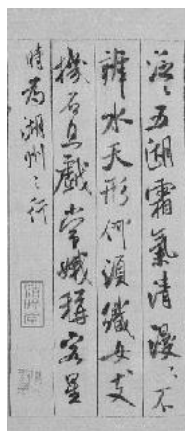 泛泛五湖霜氣清漫漫不
辨水天形何須織女支
機石且戲常娥稱客星
時為湖州之行